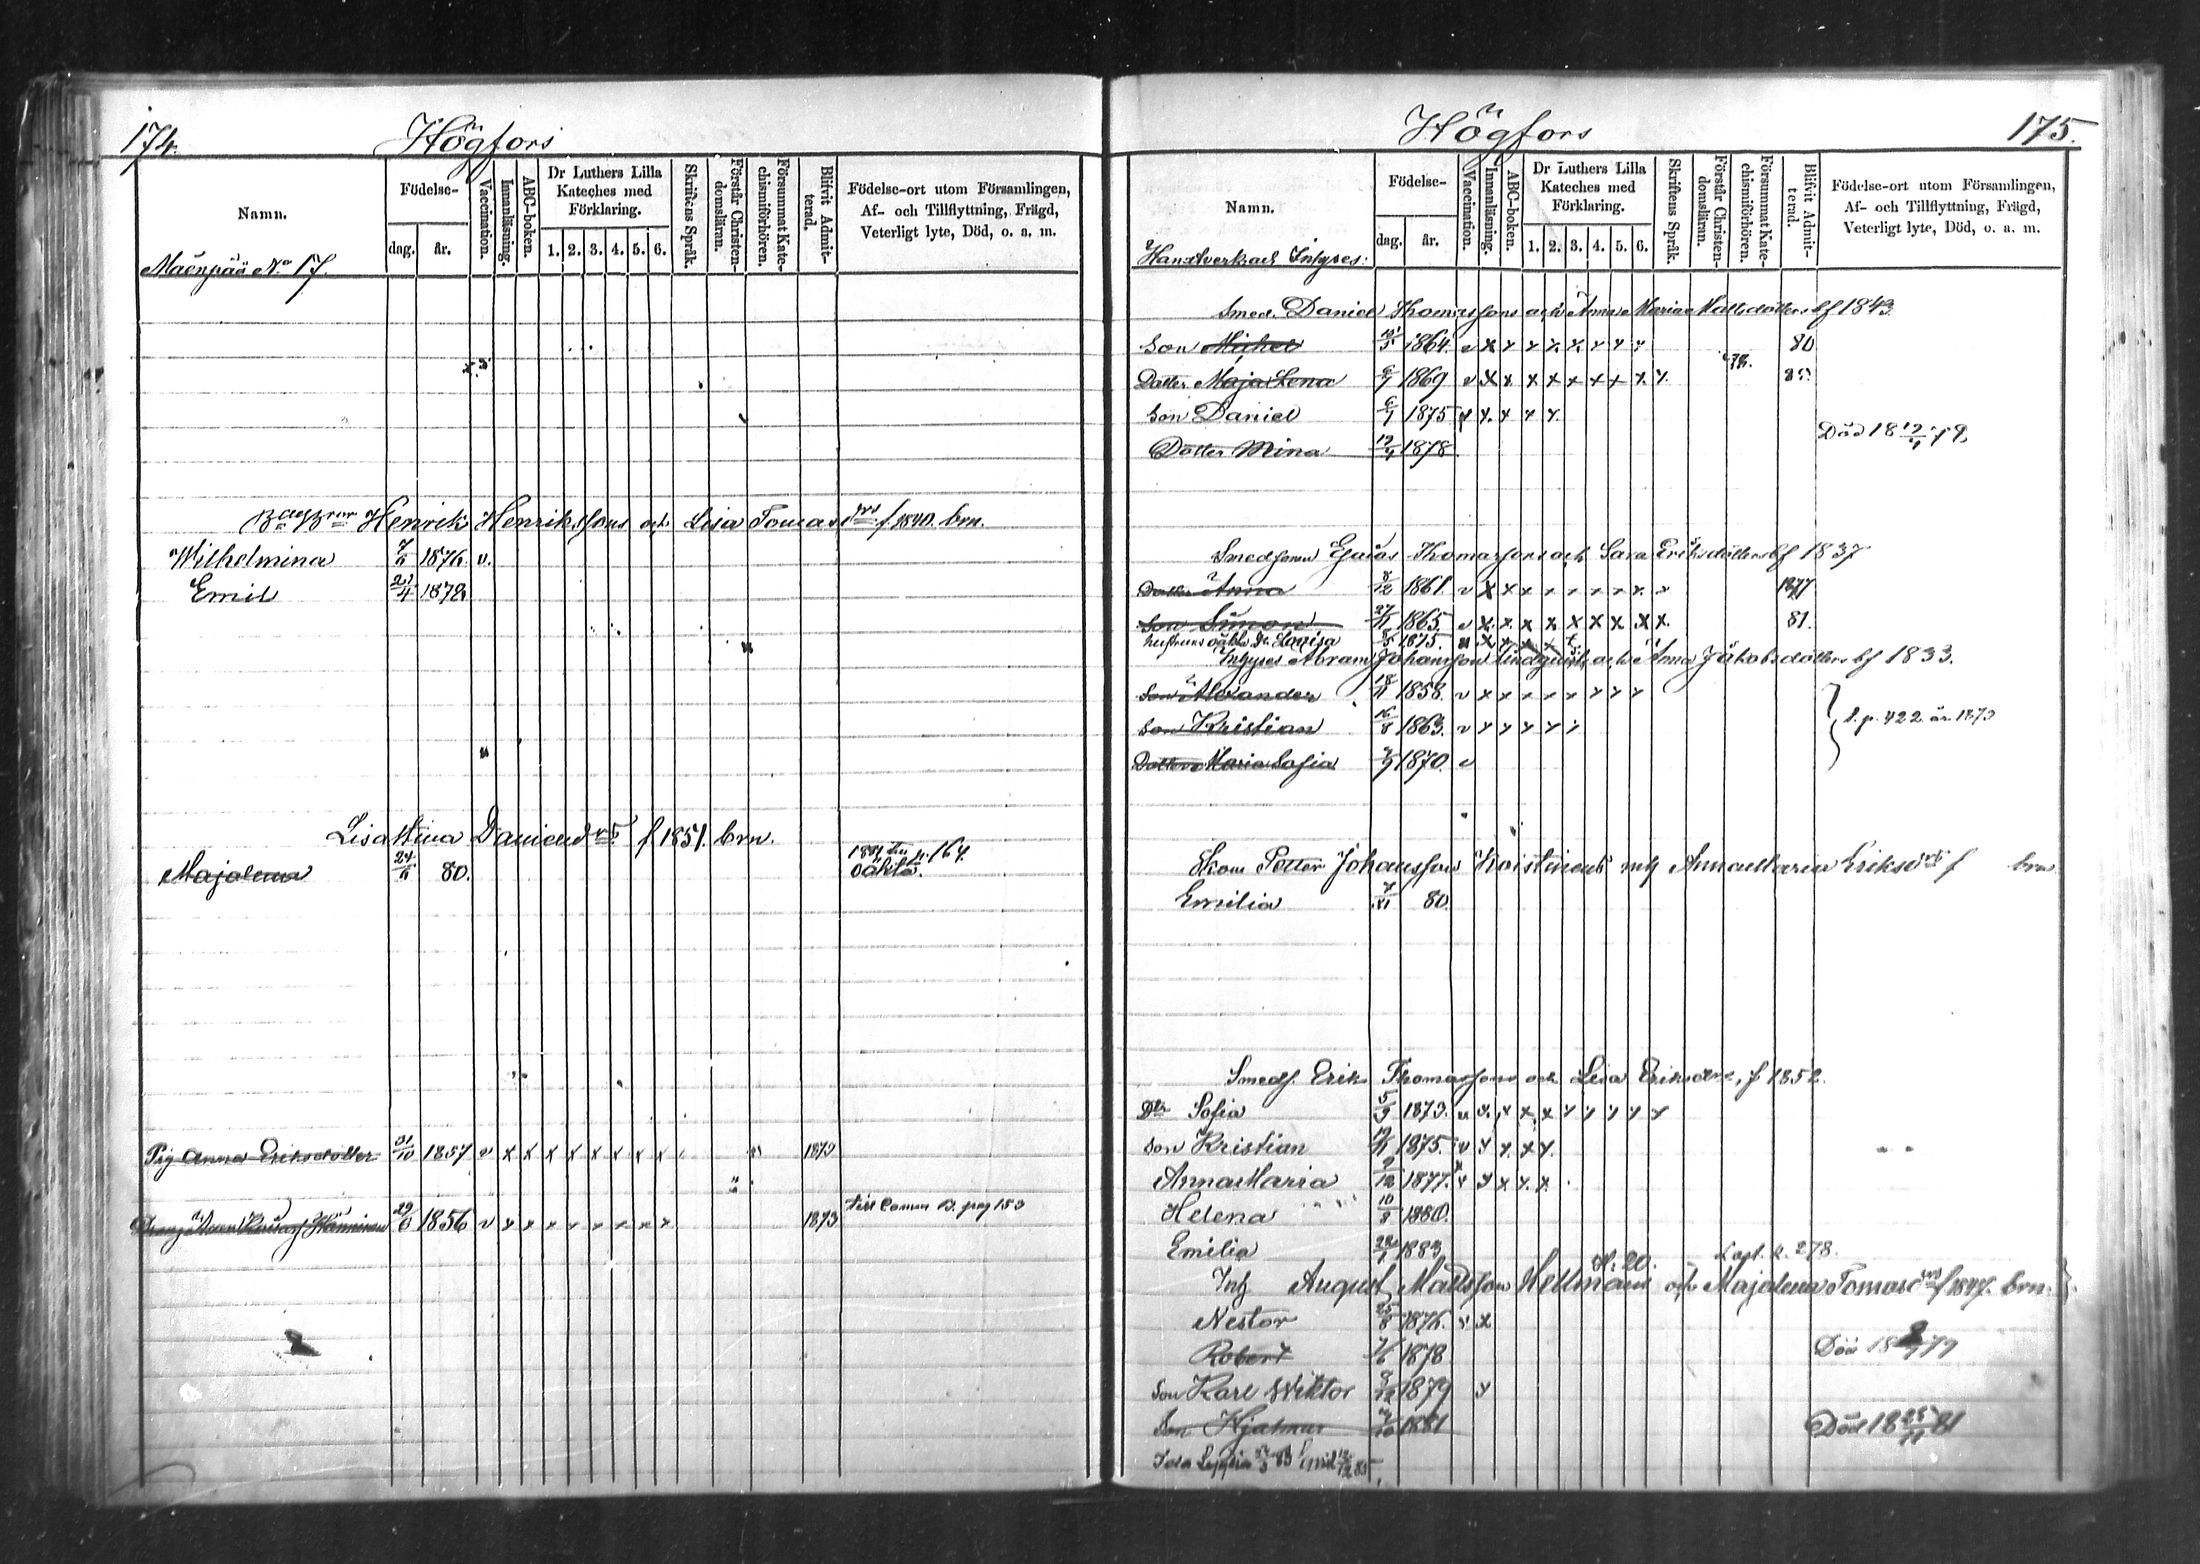 174.
Högfors
Namn.
Födelse-
dag.
år.
Vaccination.
Innanläsning.
ABC-boken.
Dr Luthers Lilla Kateches med Förklaring.
1. 2. 3. 4. 5. 6.
Skriftens Språk.
Förstår Christendomsläran.
Försummat Katechismiförhören.
Blifvit Admitterad.
Födelse-ort utom Församlingen, Af- och Tillflyttning, Frägd, Veterligt lyte, Död, o. s. m.
Mäenpää No 17.
Henrik Henrikssons och Lisa Tomasdrs f 1840. brn.
Wilhelmina 7/6 1876. v.
Emil 1878
Lisa Stina Danielsdrs f 1851. brn.
Majalena 80. p. 164.
Pig Anna Eriksdotter 31/10 1857 v x x x x x x x x
29/6 1856 v x x x x x x x x 1873 Till Comm B. pag 153
Högfors
175.
Namn.
Födelse-
dag.
år.
Vaccination.
Innanläsning.
ABC-boken.
Dr Luthers Lilla Kateches med Förklaring.
1. 2. 3. 4. 5. 6.
Skriftens Språk.
Förstår Christendomsläran.
Försummat Katechismiförhören.
Blifvit Admitterad.
Födelse-ort utom Församlingen, Af- och Tillflyttning, Frägd, Veterligt lyte, Död, o. s. m.
Handtverk och Inhyses:
Smed. Daniel Thomassons och Anna Maria Mattsdotters bf 1843.
Son Mickel 1864. v x x x x x x x x 80
Dotter Maja Lena 6/7 1869 v x x x x x x x x x
Son Daniel 6/1 1875 x x x x x
Dotter Mina 1878 Död 18 79
Smedsonen Esaias Thomassons och Sara Eriksdotters bf 1837
Dotter Anna 8/12 1861. v x x x x x x x x x 1877
Son Simon 27/11 1865. v x x x x x x x x x 81.
Lovisa 1875.
Inhyses Abram Johansson Lindqvist och Anna Jakobsdotters bf 1833.
Son Alexander 18/11 1858. v x x x x x x x x
Son Kristian 16/8 1863. v x x x x x
p. 422
Dotter Maria Sofia 1870. v
Skom Petter Johansson och Anna Maria Eriksdrs f brn
Emilia 7/11 80.
Smeds. Erik Thomassons och Lisa Eriksdrs, f 1852.
Dtr Sofia 5/9 1873. v x x x x x x x x x
Son Kristian 1875. v x x x x
Anna Maria 9/12 1877. v x x x x
Helena 10/8 1880.
Emilia 1883
p. 278.
Inh August Mattsson Hellmans och Majalena Tomasdrs f 1847. brn.
Nestor 25/8 1876. v x
Robert 1878 Död 18 79
Son Karl Wiktor 1879 v
Son Hjalmar 1881 Död 18 25/11 81
Ida 83 Emil 85